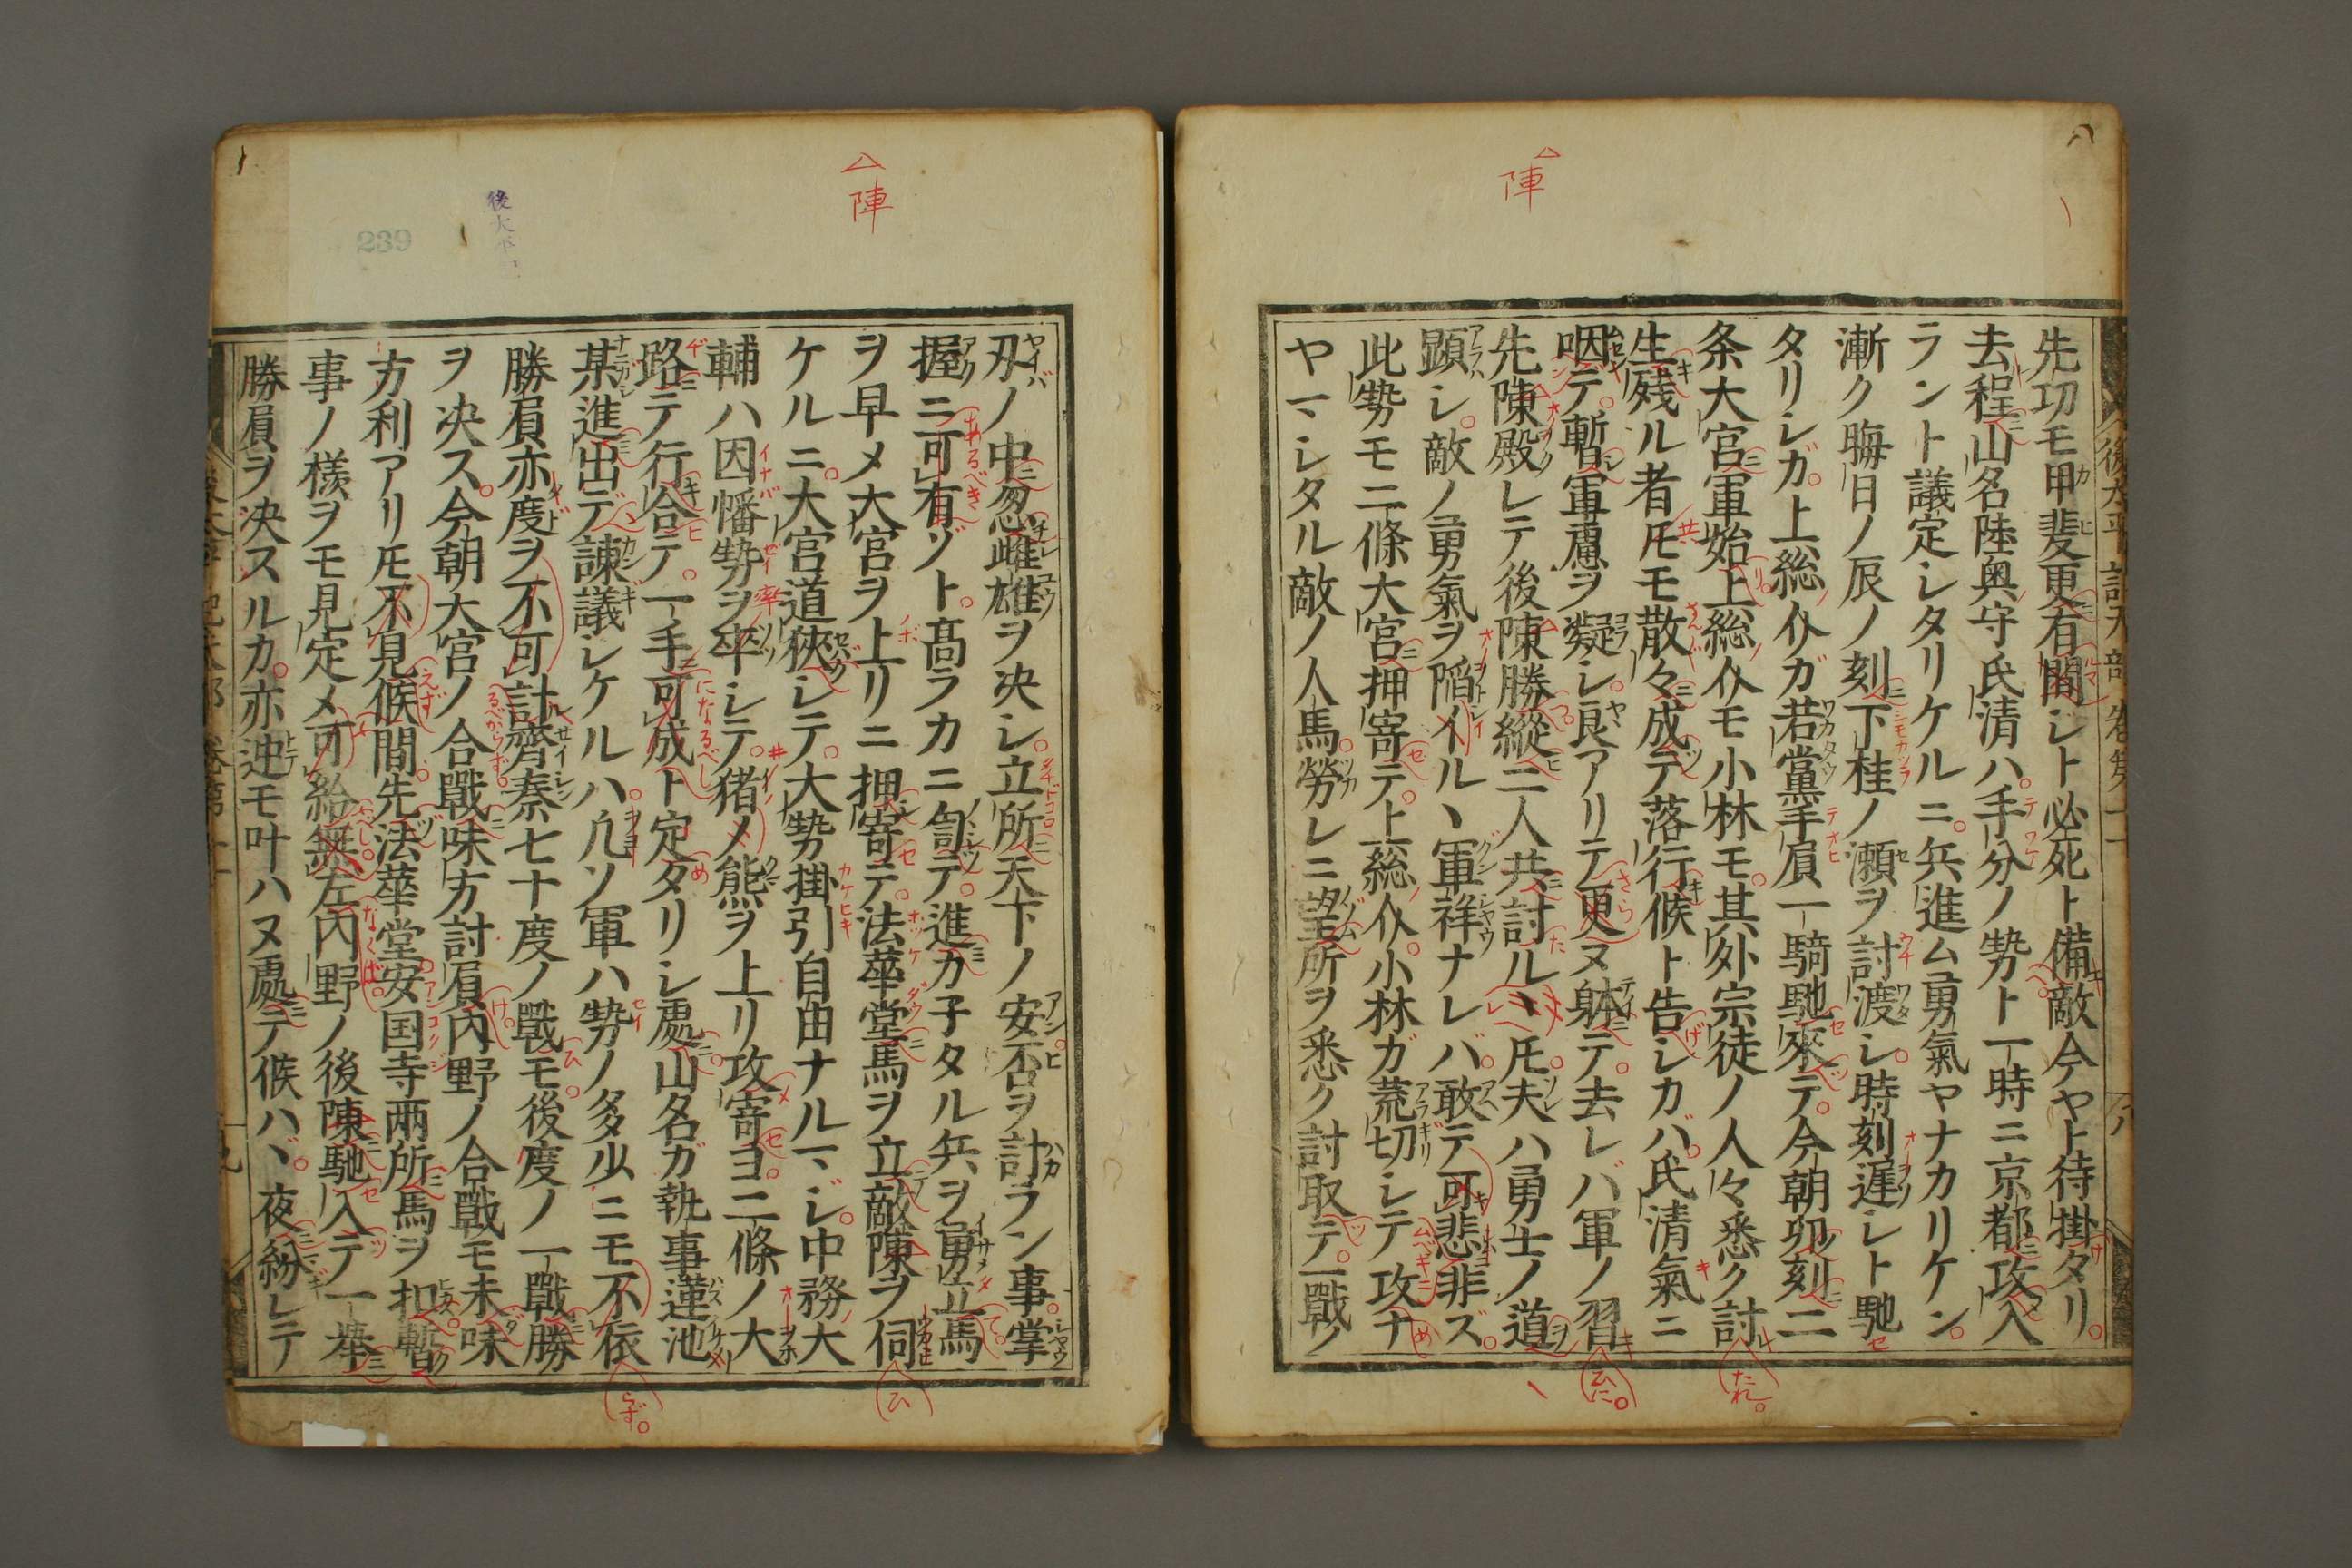 陣
先切モ甲斐更有間シト必死ト備敵今ヤト待掛タリ
去程山名陸奥守氏清ハ手分ノ勢ト一時ニ京都攻入
ラント議定シタリケルニ兵進ム勇氣ヤナカリケン
漸ク晦日ノ辰ノ刻下桂ノ瀬ヲ討渡シ時刻遅シト馳
タリシガ上総介ガ若黨手負一騎馳來テ今朝卯刻二
条大宮軍始上総介モ小林モ其外宗徒ノ人々悉ク討
生残ル者𪜈モ散々成テ落行候ト告シカバ氏清氣ニ
咽デ暫軍慮ヲ凝シ良アリテ更ヌ躰テ去レバ軍ノ習
先陳殿シテ後陳勝縦二人共討ルヽ𪜈夫ハ勇士ノ道
顕シ敵ノ勇氣ヲ陥イルヽ軍祥ナレバ敢テ可悲非ズ
此勢モ二條大宮押寄テ上総介小林ガ荒切シテ攻ナ
ヤマシタル敵ノ人馬勞レニ望所ヲ悉ク討取テ一戰ノ
後太平記
陣
239
刃ノ中忽雌雄ヲ决シ立所天下ノ安否ヲ計ラン事掌
握ニ可有ゾト高ラカニ訇テ進カ子タル兵ヲ勇立馬
ヲ早メ大宮ヲ上リニ押寄テ法華堂馬ヲ立敵陳ヲ伺
ケルニ大宮道狹シテ大勢掛引自由ナルマジ中務大
輔ハ因幡勢ヲ卒シテ猪ノ熊ヲ上リ攻寄ヨ二條ノ大
路テ行合テ一手可成ト定タリシ處山名ガ執事蓮池
某進出デ諫議シケルハ凢ソ軍ハ勢ノ多少ニモ不依
勝負亦度ヲ不可計齊秦七十度ノ戰モ後度ノ一戰勝
ヲ决ス今朝大宮ノ合戰味方討負内野ノ合戰モ未味
方利アリ𪜈不見候間先法華堂安国寺两所馬ヲ扣暫
事ノ樣ヲモ見定メ可給無左内野ノ後陳馳入テ一挙
勝負ヲ决スルカ亦迚モ叶ハヌ處テ候ハヾ夜紛レテ